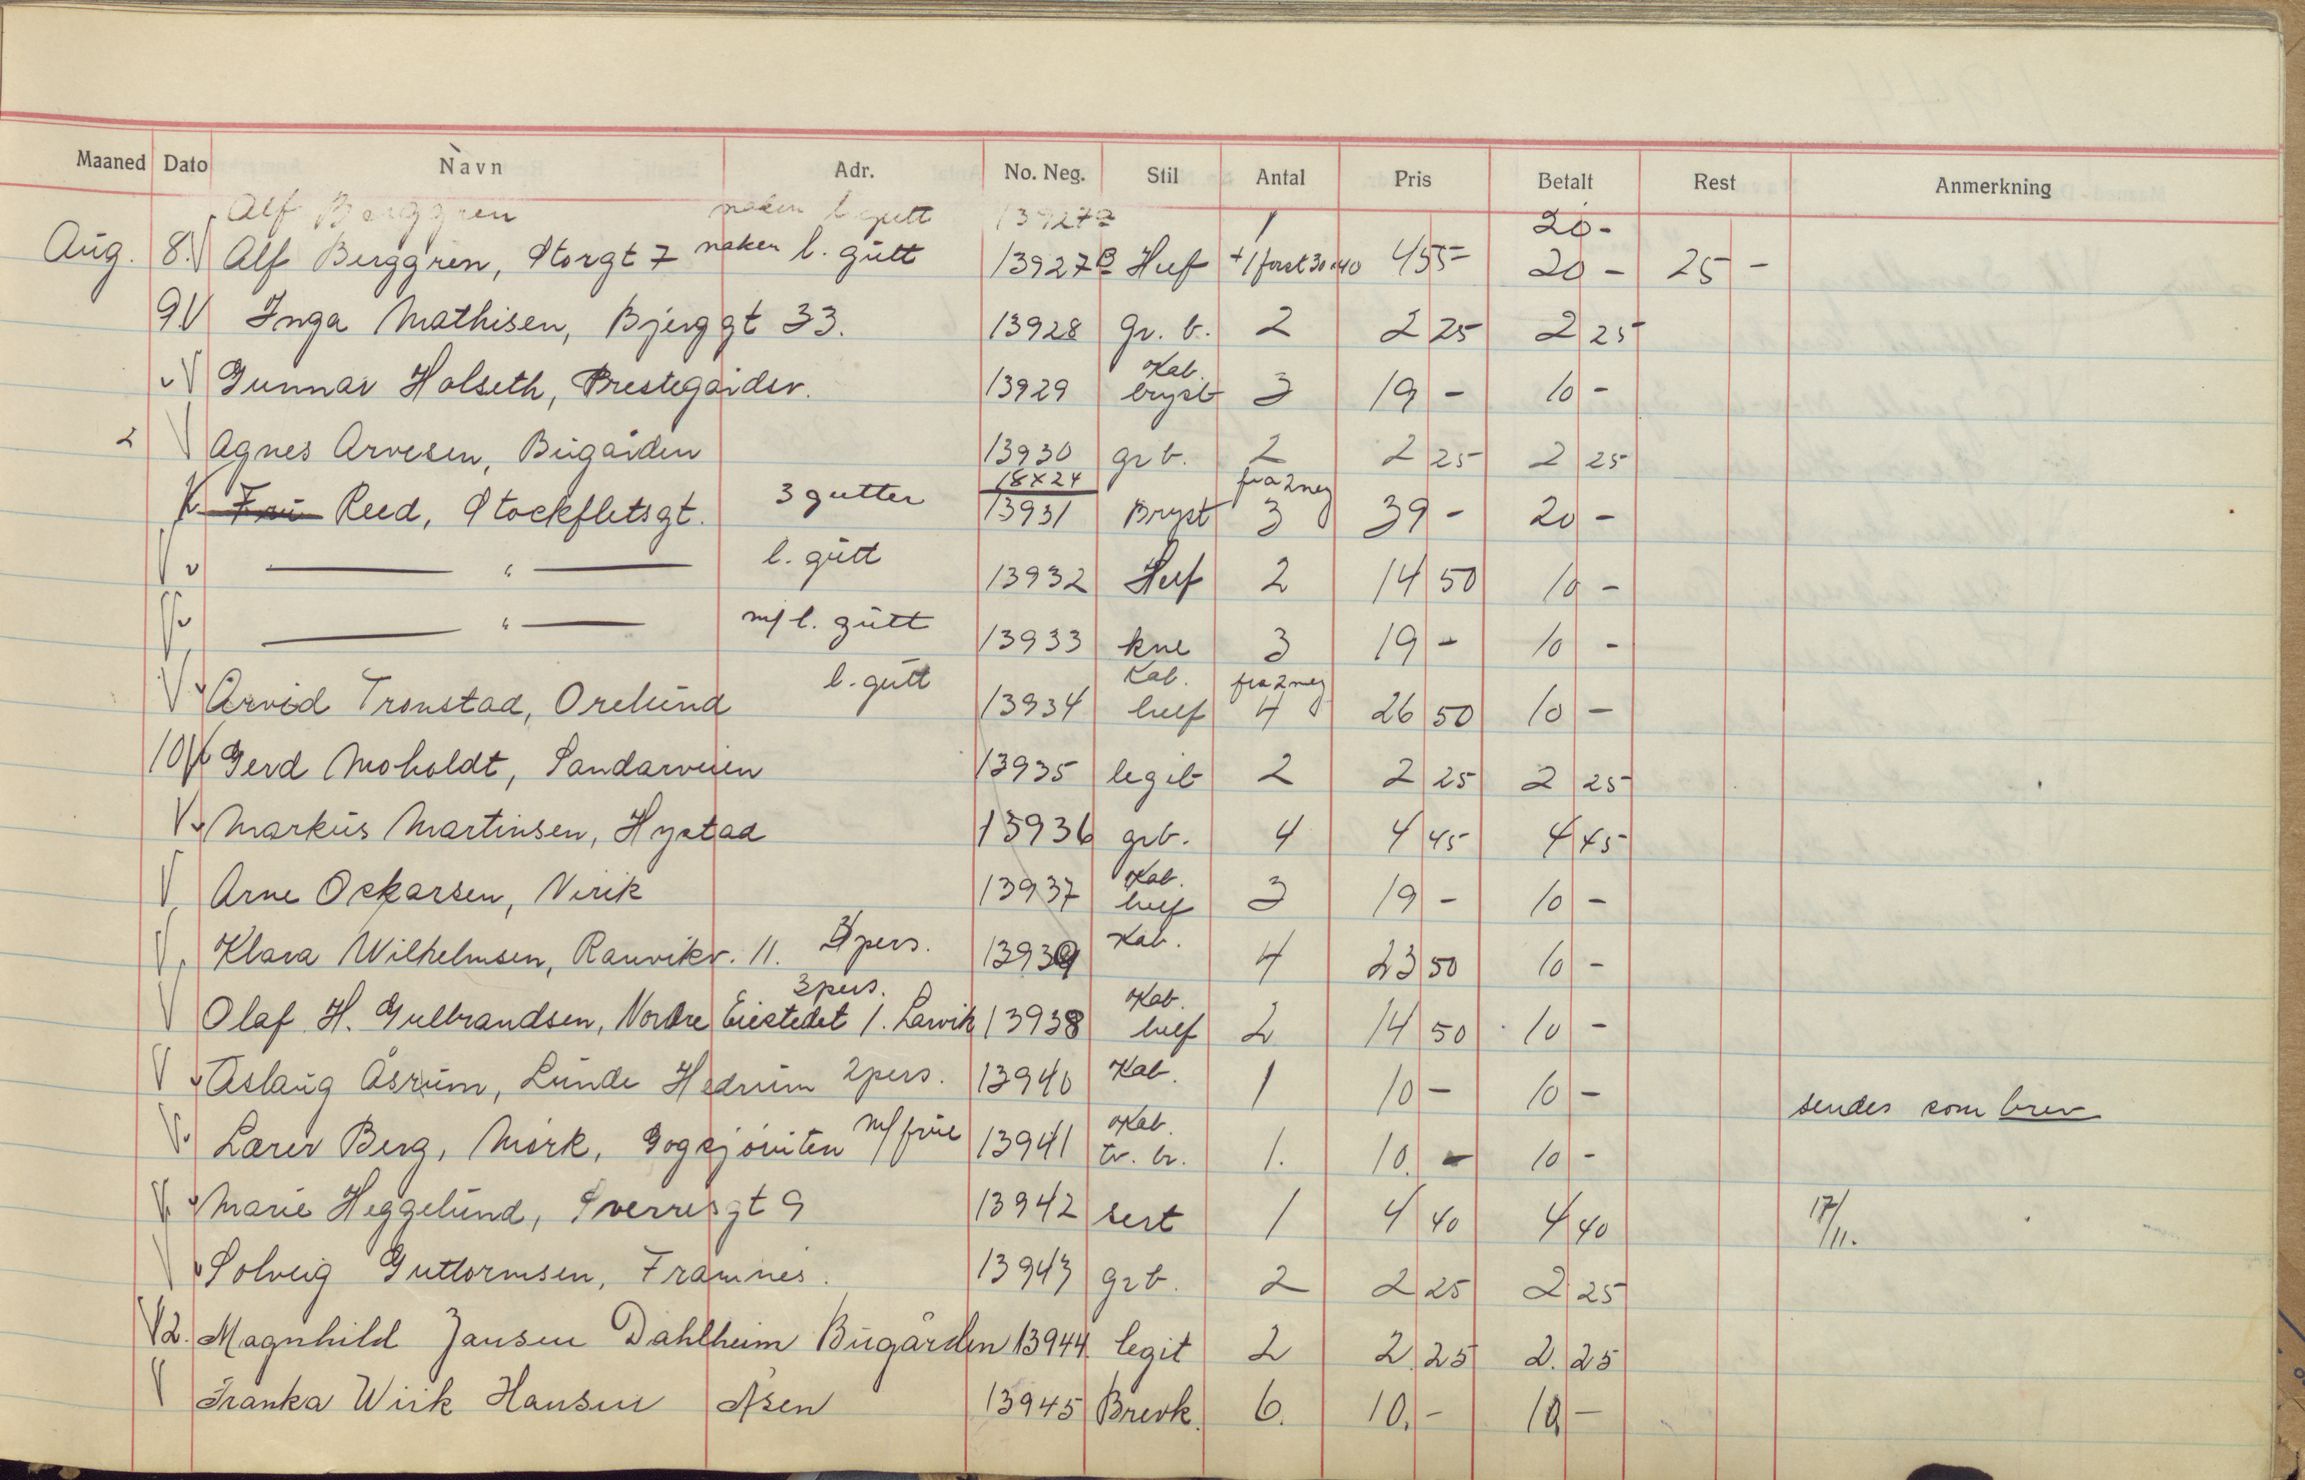 Maaned Dato Navn Adr. No. Neg. Stil Antal Pris Betalt Rest Anmerkning
Alf Berggren naken l. gutt 13927a 1 20-
Aug. 8. Alf Berggren, Storgt 7 naken l. gutt 13927B Huf +1 forst 30x40 45 5- 20 - 25 -
9 Inga Mathisen, Bjerggt 33. 13928 gr. b. 2 2 25 2 25
Gunnar Holseth, Prestegårdsv. 13929 Kab. bryst 3 19 - 10 -
2 Agnes Arvesen, Bugården 13930 gr b. 2 2 25 2 25
Fru Reed, Stockfletsgt. 3 gutter 18x24 13931 Bryst fra 2 neg 3 39 - 20 -
— " — l. gutt 13932 Huf 2 14 50 10 -
— " — m/ l. gutt 13933 kne 3 19 - 10 -
Arvid Tronstad, Orelund l. gutt 13934 Kab. huf fra 2 neg 4 26 50 10 -
10 Gerd Moholdt, Sandarveien 13935 legit 2 2 25 2 25
Markus Martinsen, Hystad 13936 grb. 4 4 45 4 45
Arne Oskarsen, Virik 13937 Kab. huf 3 19 - 10 -
Klara Wilhelmsen, Ranvikv. 11. pers. 13939 Kab. 4 23 50 10 -
3 pers.
Olaf H. Gulbrandsen, Nordre Eiestedet /. Larvik 13938 Kab. huf 2 14 50 10 -
Aslaug Åsrum, Lunde Hedrum 2 pers. 13940 Kab. 1 10 - 10 - sendes som brev
Lærer Berg, Mørk, Gogsjø m/ frue 13941 Kab. tr. br. 1. 10. - 10 -
Marie Heggelund, Sverresgt 9 13942 sert 1 4 40 4 40 17/11.
Solveig Guttormsen, Framnes. 13943 grb. 2 2 25 2 25
12. Magnhild Jansen Dahlheim Bugården 13944 legit 2 2 25 2. 25
Franka Wiik Hansen Åsen 13945 Brevk. 6. 10. - 10 -